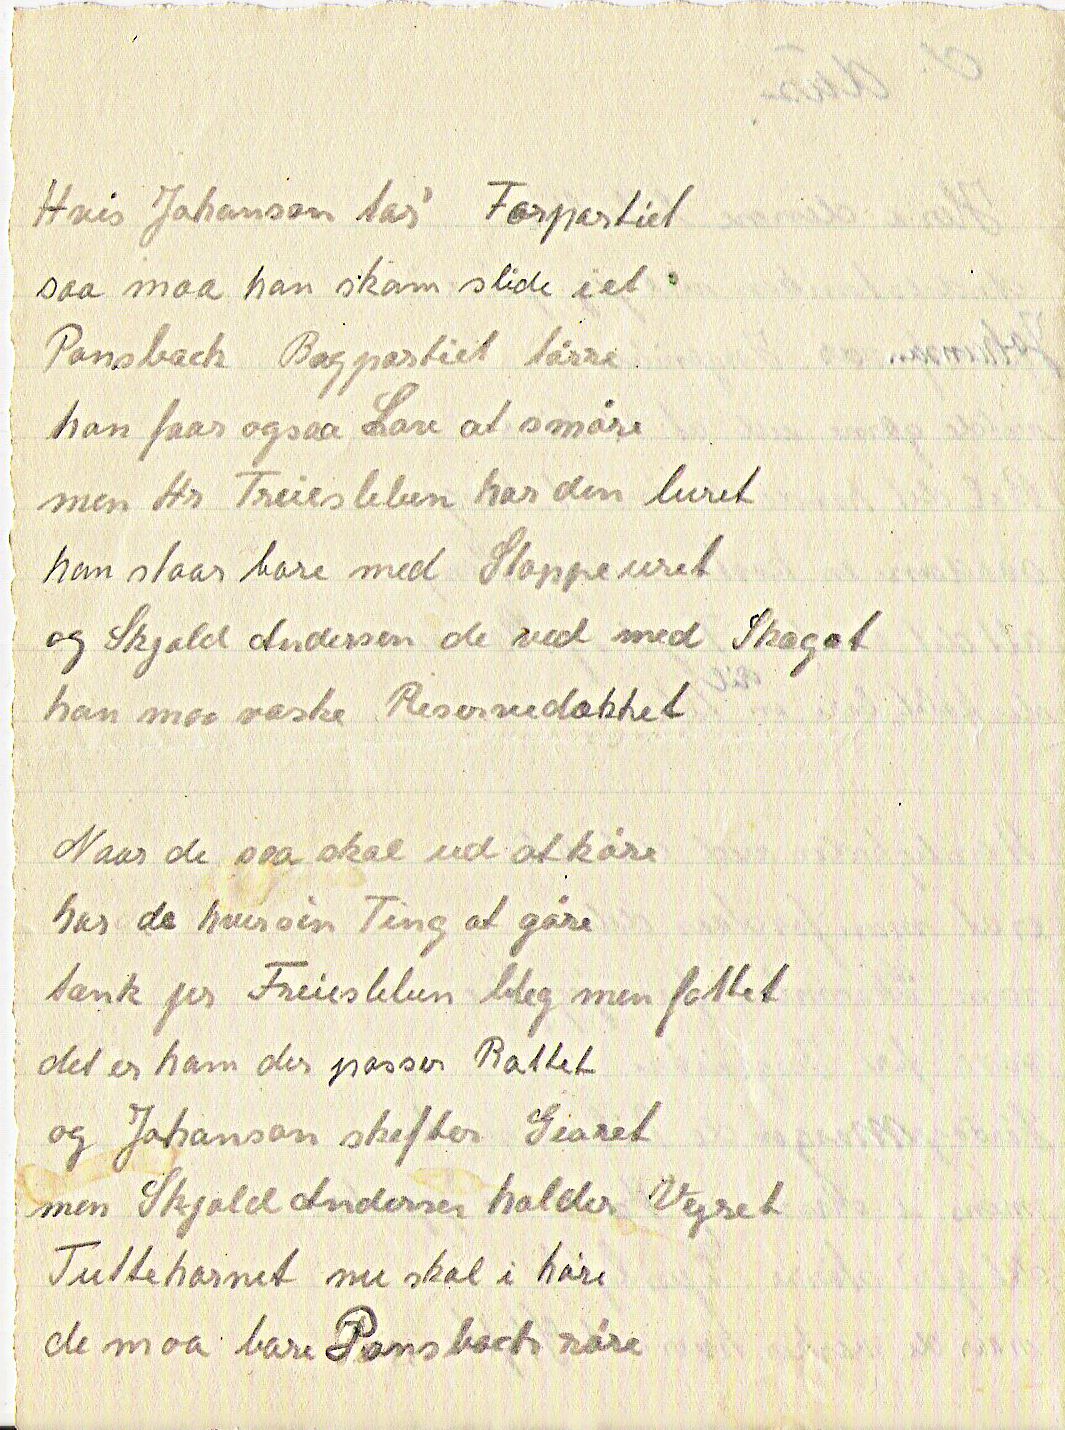 Hvis Johanson tar' Forpartiet
saa maa han skam slide i et
Ponsbach Bagpartiet tørre
han faar ogsaa Lov at smøre
men Hr Freiesleben har den luret
han staar bare med Stoppeuret
og Skjold Andersen de ved med Skæget
han maa vaske Reservedækket
Naar de saa skal ud at køre
har de hver sin Ting at gøre
tænk jer Freiesleben bleg men fattet
det er ham der passer Rattet
og Johanson skifter Gearet
men Skjold Andersen holder Vejret
Tuttehornet nu skal i høre
de maa bare Ponsbach røre